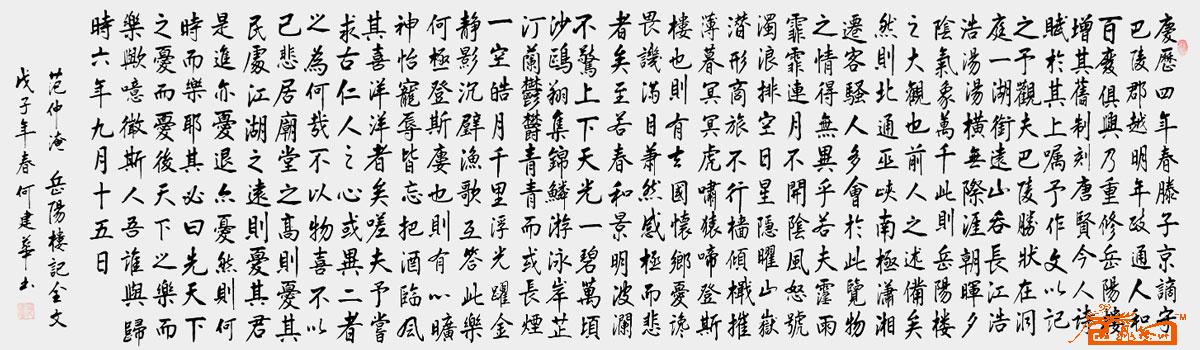 慶歷四年春滕子京謫守
巴陵郡越明年政通人和
百廢俱興乃重修岳陽樓
增其舊制刻唐賢今人詩
賦於其上囑予作文以記
之予觀夫巴陵勝狀在洞
庭一湖銜遠山吞長江浩
浩湯湯橫無際涯朝暉夕
陰氣象萬千此則岳陽樓
之大觀也前人之述備矣
然則北通巫峽南極瀟湘
遷客騷人多會於此覽物
之情得無異乎若夫霪雨
霏霏連月不開陰風怒號
濁浪排空日星隱曜山嶽
潛形商旅不行檣傾檝摧
薄暮冥冥虎嘯猿啼登斯
樓也則有去國懷鄉憂讒
畏譏滿目蕭然感極而悲
者矣至若春和景明波瀾
不驚上下天光一碧萬頃
沙鷗翔集錦鱗游泳岸芷
汀蘭鬱鬱青青而或長煙
一空皓月千里浮光躍金
靜影沉璧漁歌互答此樂
何極登斯樓也則有心曠
神怡寵辱皆忘把酒臨風
其喜洋洋者矣嗟夫予嘗
求古仁人之心或異二者
之為何哉不以物喜不以
己悲居廟堂之高則憂其
民處江湖之遠則憂其君
是進亦憂退亦憂然則何
時而樂耶其必曰先天下
之憂而憂後天下之樂而
樂歟噫微斯人吾誰與歸
時六年九月十五日
范仲淹 岳陽樓記全文
戊子年春何建華書